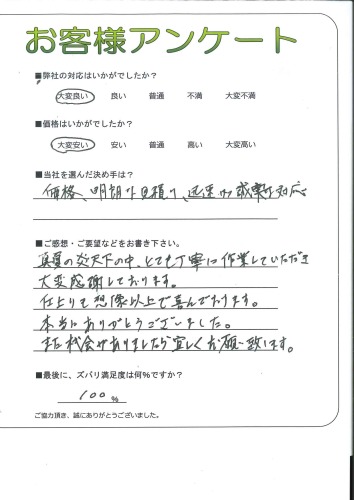 お客様アンケート
■弊社の対応はいかがでしたか?
大変良い 良い 普通 不満 大変不満
■価格はいかがでしたか?
大変安い 安い 普通 高い 大変高い
■当社を選んだ決め手は?
価格、明朗な見積り、迅速かつ誠実な対応
■ご感想・ご要望などをお書き下さい。
真夏の炎天下の中、とても丁寧に作業していただき
大変感謝しております。
仕上りも想像以上で喜んでおります。
本当にありがとうございました。
また機会がありましたら宜しくお願い致します。
■最後に、ズバリ満足度は何%ですか?
100%
ご協力頂き、誠にありがとうございました。